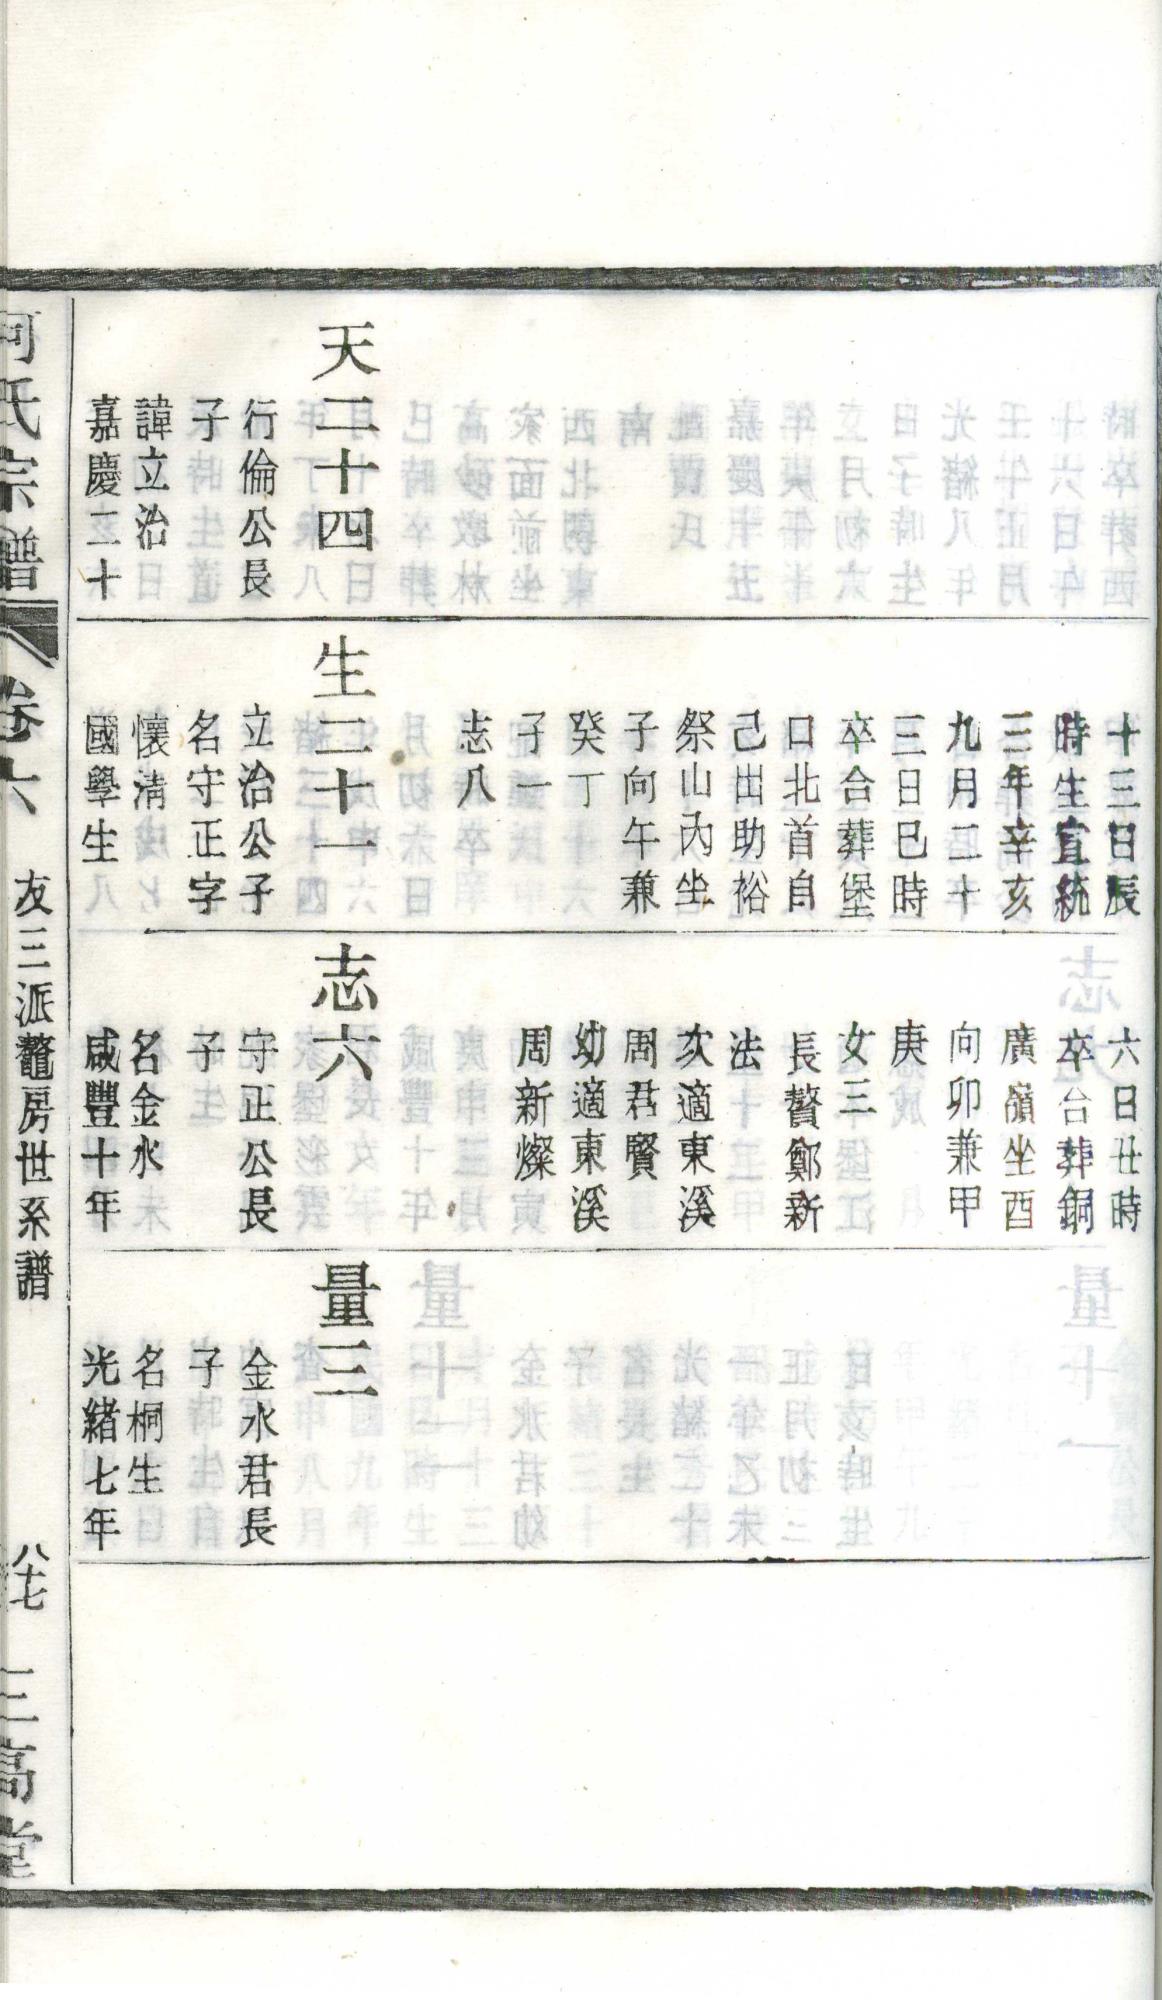 天二十四
行倫公長
子
諱立治
嘉慶二十
十三日辰
時生宣統
三年辛亥
九月二十
三日巳時
卒合葬堡
口北首自
己出助裕
祭山內坐
子向午兼
癸丁
子一
志八
生二十一
立治公子
名守正字
懷清
國學生
六日丑時
卒合葬銅
廣嶺坐酉
向卯兼甲
庚
女三
長贅鄭新
法
次適東溪
周君賢
幼適東溪
周新燦
志六
守正公長
子
名金水
咸豐十年
量三
金水君長
子
名桐生
光緒七年
何氏宗譜
卷六
友三派鼇房世系譜
八十七
三高堂